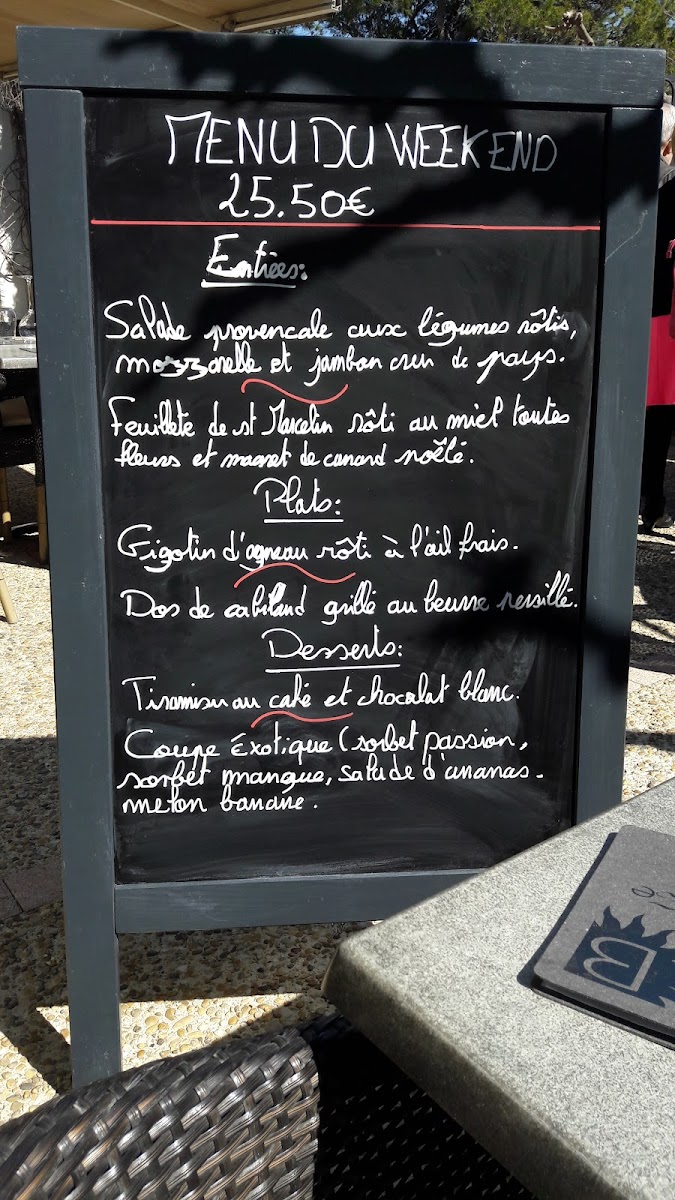 MENU DU WEEK END
25.50€
Entrées:
Salade provencale aux légumes rôtis,
mozzarelle et jambon cru de pays.
Feuilleté de st Marcelin rôti au miel toutes
fleurs et magret de canard poêlé.
Plats:
Gigotin d'agneau rôti à l'ail frais.
Dos de cabillaud grillé au beurre persillé.
Desserts:
Tiramisu au café et chocolat blanc.
Coupe Exotique (sorbet passion,
sorbet mangue, salade d'ananas-
melon banane.
B